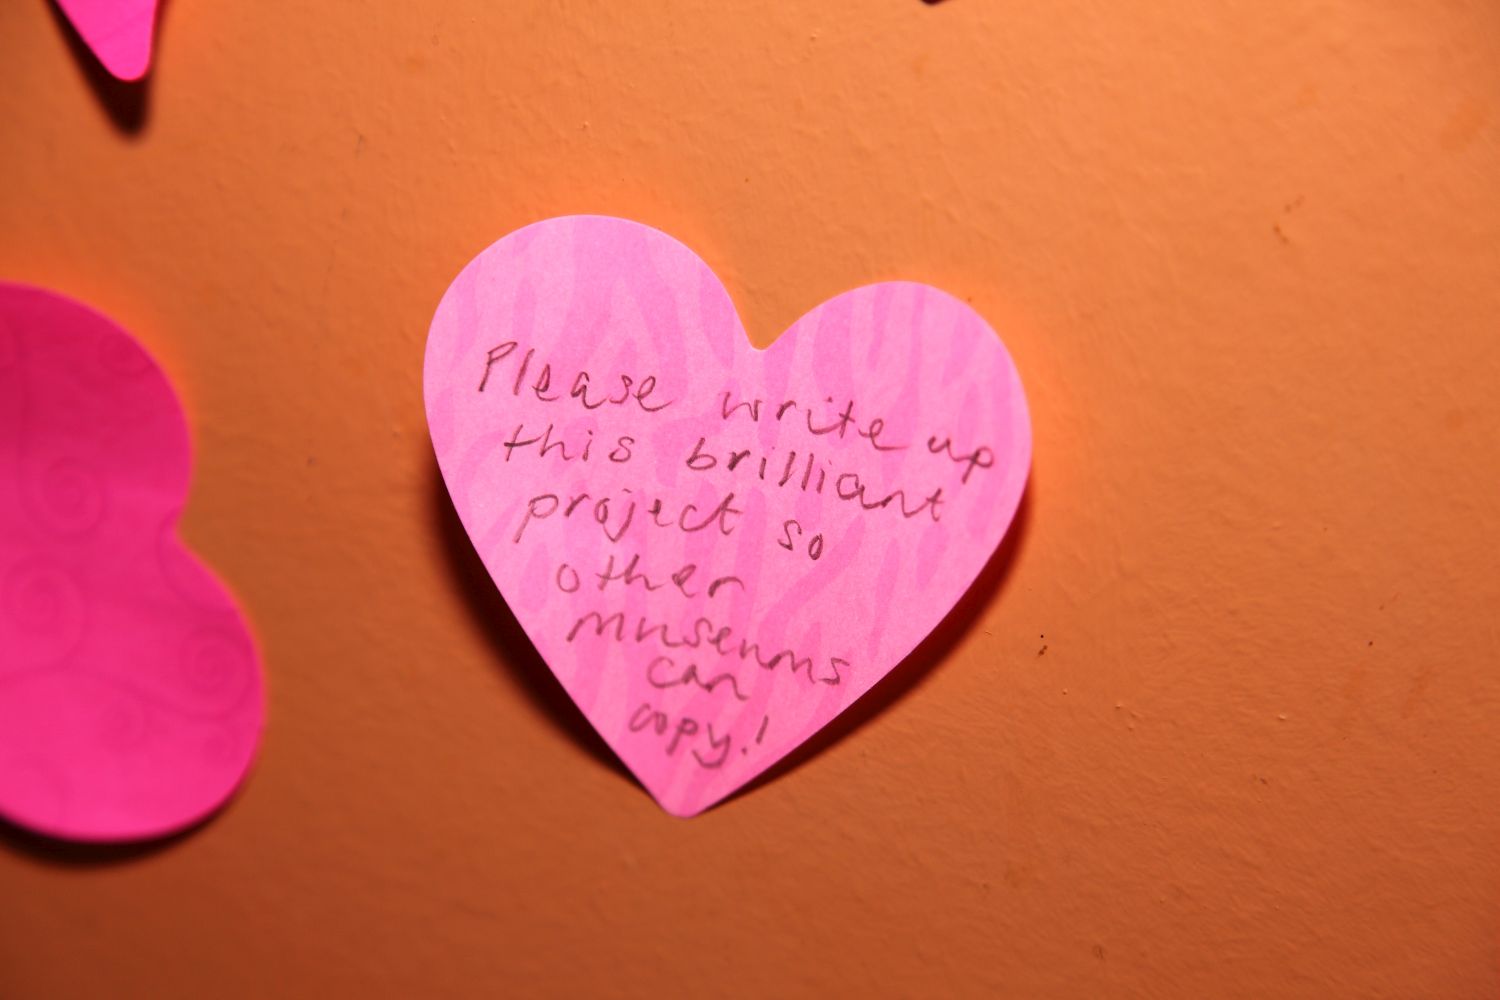 Please write up
this brilliant
project so
other
museums
can
copy!